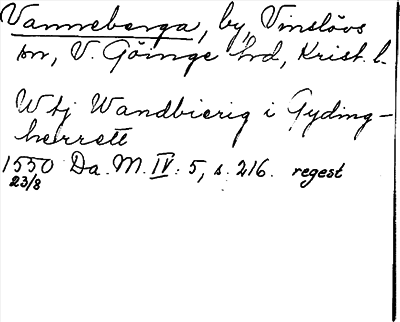 Vanneberga, by, Vinslövs
sn, V. Göinge hrd, Krist. l.
Wtj Wandbierig i Gyding-
herrett
1550 Da. M. IV: 5, s. 216. regest
23/8